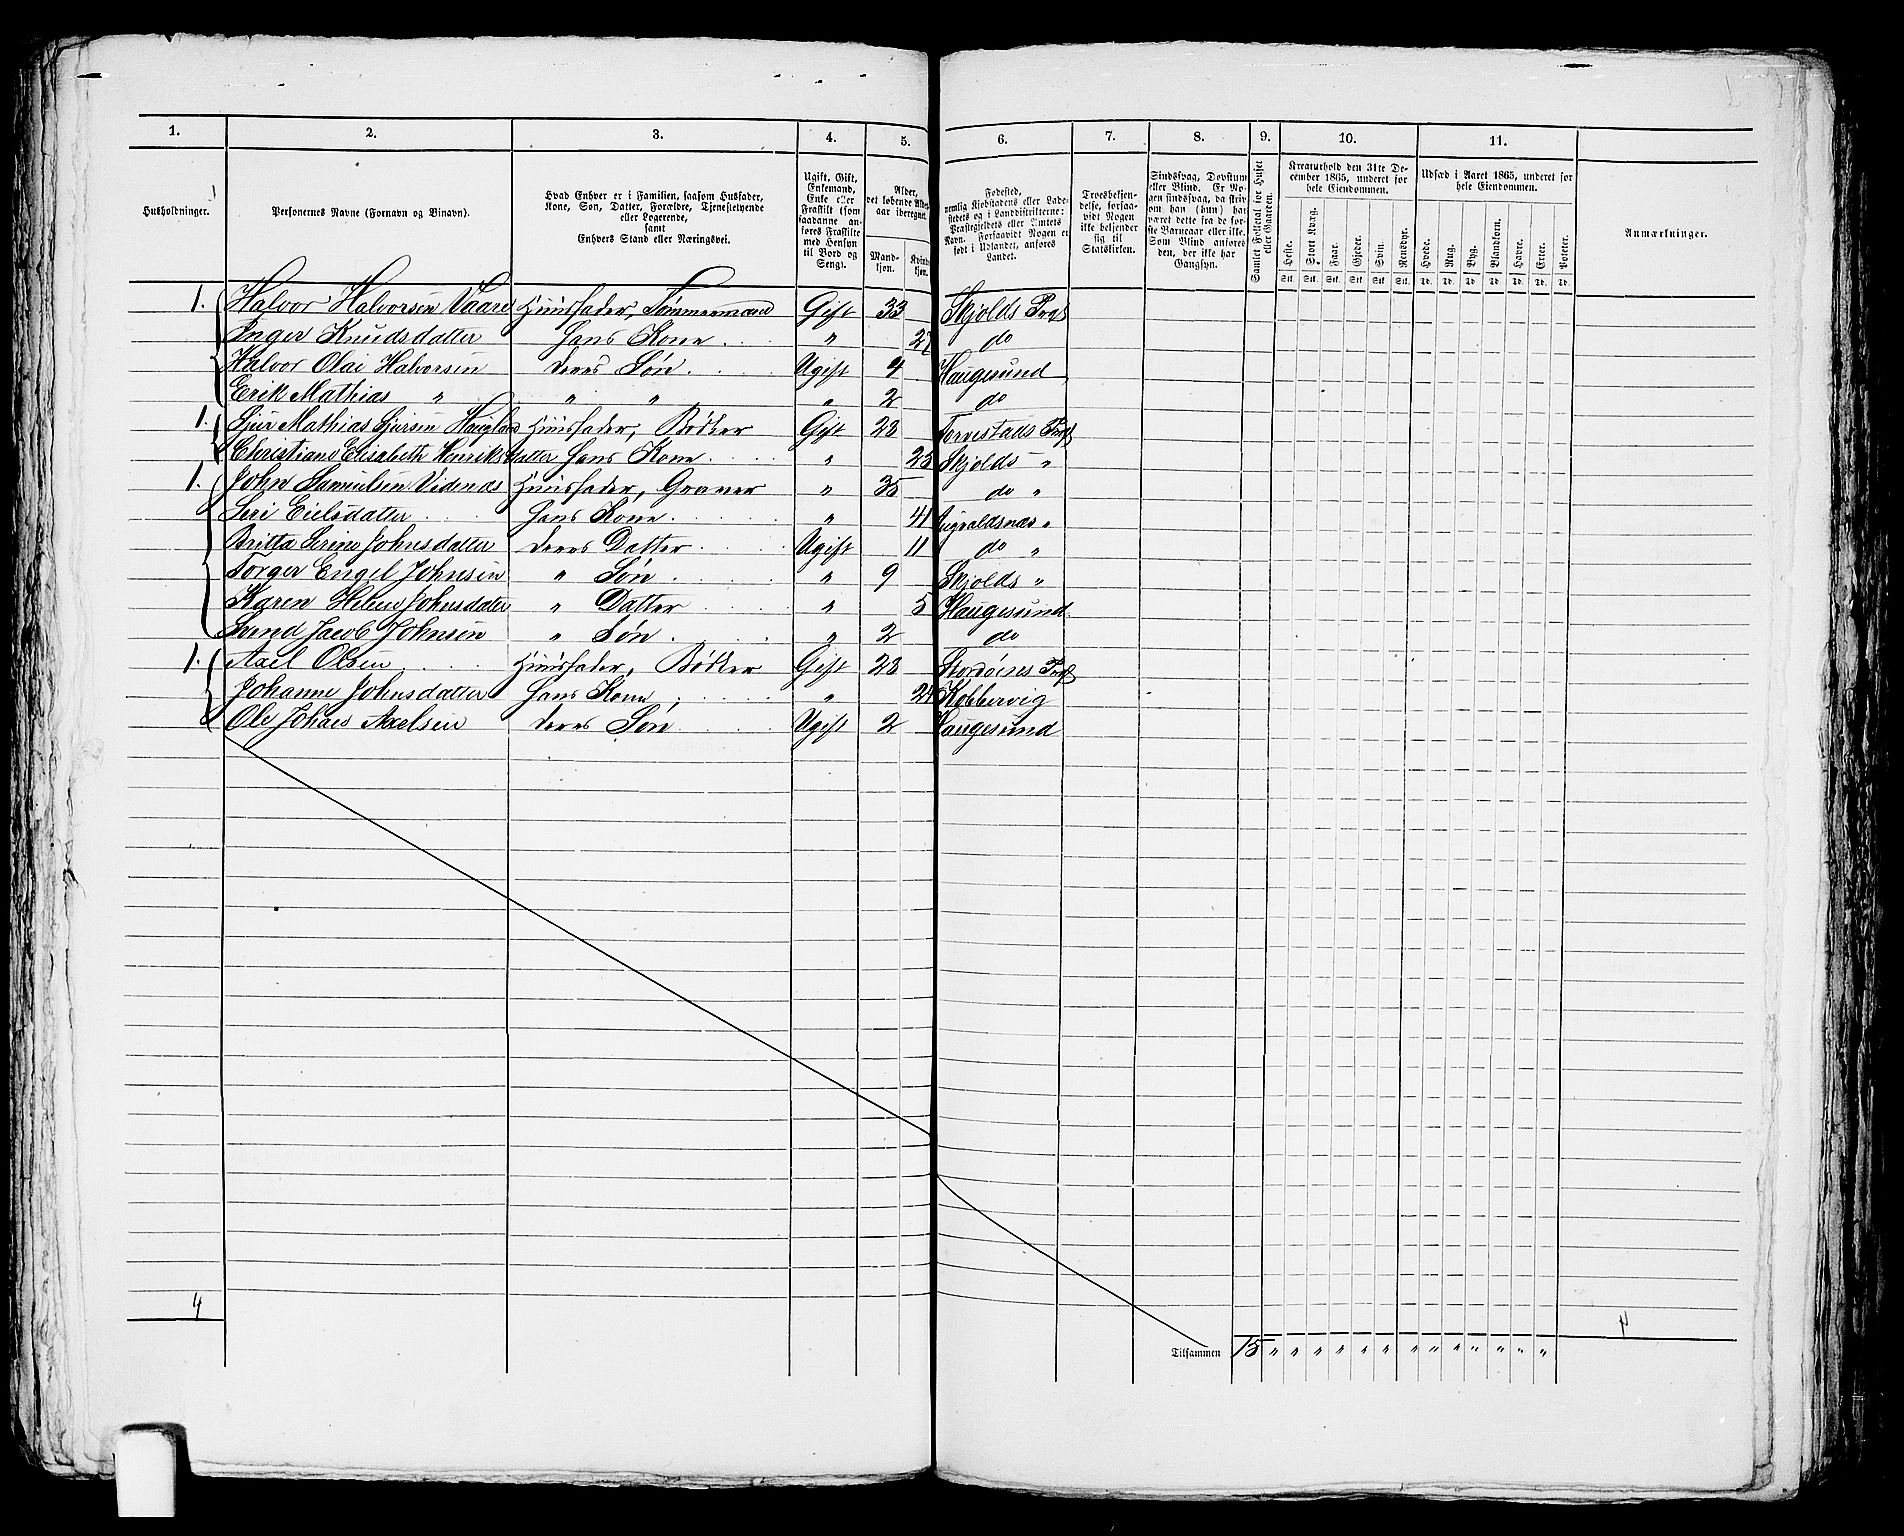 1. 2. 3. 4. 5. 6. 7. 8. 9. 10. 11.
Husholdninger.
Personernes Navne (Fornavn og Binavn).
Hvad Enhver er i Familien, saasom Husfader,
Kone, Søn, Datter, Forældre, Tjenestetyende
eller Logerende,
samt
Enhvers Stand eller Næringsvei.
Ugift, Gift,
Enkemand,
Enke eller
Fraskilt (som
saadanne an-
føres Fraskilte
med Hensyn
til Bord og
Seng).
Alder,
det løbende Alders-
aar iberegnet.
Mand-
kjøn.
Kvinde-
kjøn.
Fødested,
nemlig Kjøbstadens eller Lade-
stedets og i Landdistrikterne:
Præstegjeldets eller Amtets
Navn. Forsaavidt Nogen er
født i Udlandet, anføres
Landet.
Troesbekjen-
delse, forsaa-
vidt Nogen
ikke bekjender
sig til
Statskirken.
Sindssvag, Døvstum
eller Blind. Er No-
gen sindssvag, da skriv
om han (hun) har
været dette fra de før-
ste Barneaar eller ikke.
Som Blind anføres
den, der ikke har
Gangsyn.
Samlet Folketal for Huset
eller Gaarden.
Kreaturhold den 31te De-
cember 1865, underet for
hele Eiendommen.
Heste. Stort Kvæg. Faar. Gjeder. Svin. Rensdyr.
Stk. Stk. Stk. Stk. Stk. Stk.
Udsæd i Aaret 1865, underet for
hele Eiendommen.
Hvede. Rug. Byg. Blandkorn. Havre. Erter. Poteter.
Td. Td. Td. Td. Td. Td. Td.
Anmærkninger.
1. Halvor Halvorsen Vaare Huusfader, Tømmermand Gift 33 Skjolds Pgj
Inger Knudsdatter Hans Kone " do
Halvor Olai Halvorsen Deres Søn Ugift 4 Haugesund
Erik Mathias " " " " 2 do
1. Sjur Mathias Sjursen Haugland Huusfader, Bødker Gift 28 Torvestads Pgj
Christiane Elisabeth Henriksdatter Hans Kone " 25 Skjolds "
1. John Samuelsen Videnæs Huusfader, Graver " 35 do "
Siri Eielsdatter Hans Kone " 41 Augvaldsnæs "
Britta Serine Johnsdatter Deres Datter Ugift 11 do "
Torger Engel Johnsen " Søn " 9 Skjolds "
Karen Helene Johnsdatter " Datter " 5 Haugesund
Svend Jacob Johnsen " Søn " 2 do
1. Axel Olsen Huusfader, Bødker Gift 28 Stordøens Pgj
Johanne Johnsdatter Hans Kone " 24 Kobbervig
Ole Johan Axelsen Deres Søn Ugift 2 Haugesund
4
4
Tilsammen 15 " " " " " " " " " " " " "